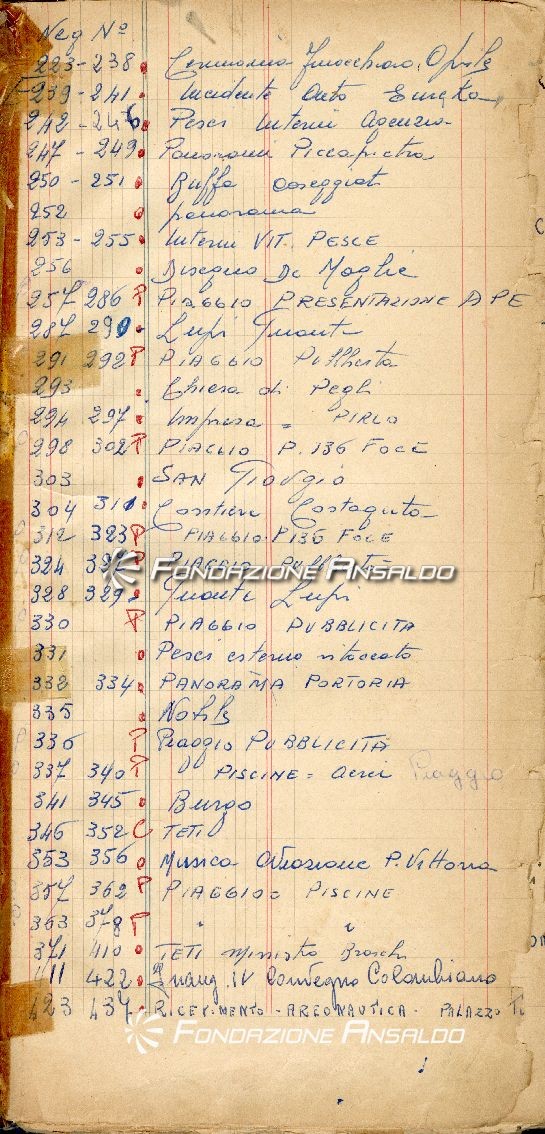 Neg Nº
223 - 238
239 - 241 Incidente Auto Eureka
242 - 246 Pesci Interni Agenzia
247 - 249 Panorami Piccapietra
250 - 251 Buffa
252 panorama
253 - 255 Interni VIT. PESCE
256 Disegno De Moglie
257 286 P PIAGGIO PRESENTAZIONE APE
287 290 Lupi
291 292 P PIAGGIO
293 Chiesa di Pegli
294 297 Impresa = PIRLO
298 302 P PIAGGIO P. 136 FOCE
303 SAN Giorgio
304 310 Cantiere Costaguta
312 323 P PIAGGIO P136 FOCE
324 327 P PIAGGIO
328 329 Lupi
330 P PIAGGIO PUBBLICITA
331 Pesci esterno ritoccato
332 334 PANORAMA PORTORIA
335
336 P Piaggio PUBBLICITÀ
337 340 P " PISCINE = Aerei Piaggio
341 345 Burgo
346 352 C TETI
353 356 Musica P. Vittoria
357 362 P PIAGGIO = PISCINE
363 378 P " "
371 410 TETI Ministro
411 422 IV Convegno Colombiano
423 437 RICEVIMENTO - ARGONAUTICA - PALAZZO
FONDAZIONE ANSALDO
FONDAZIONE ANSALDO